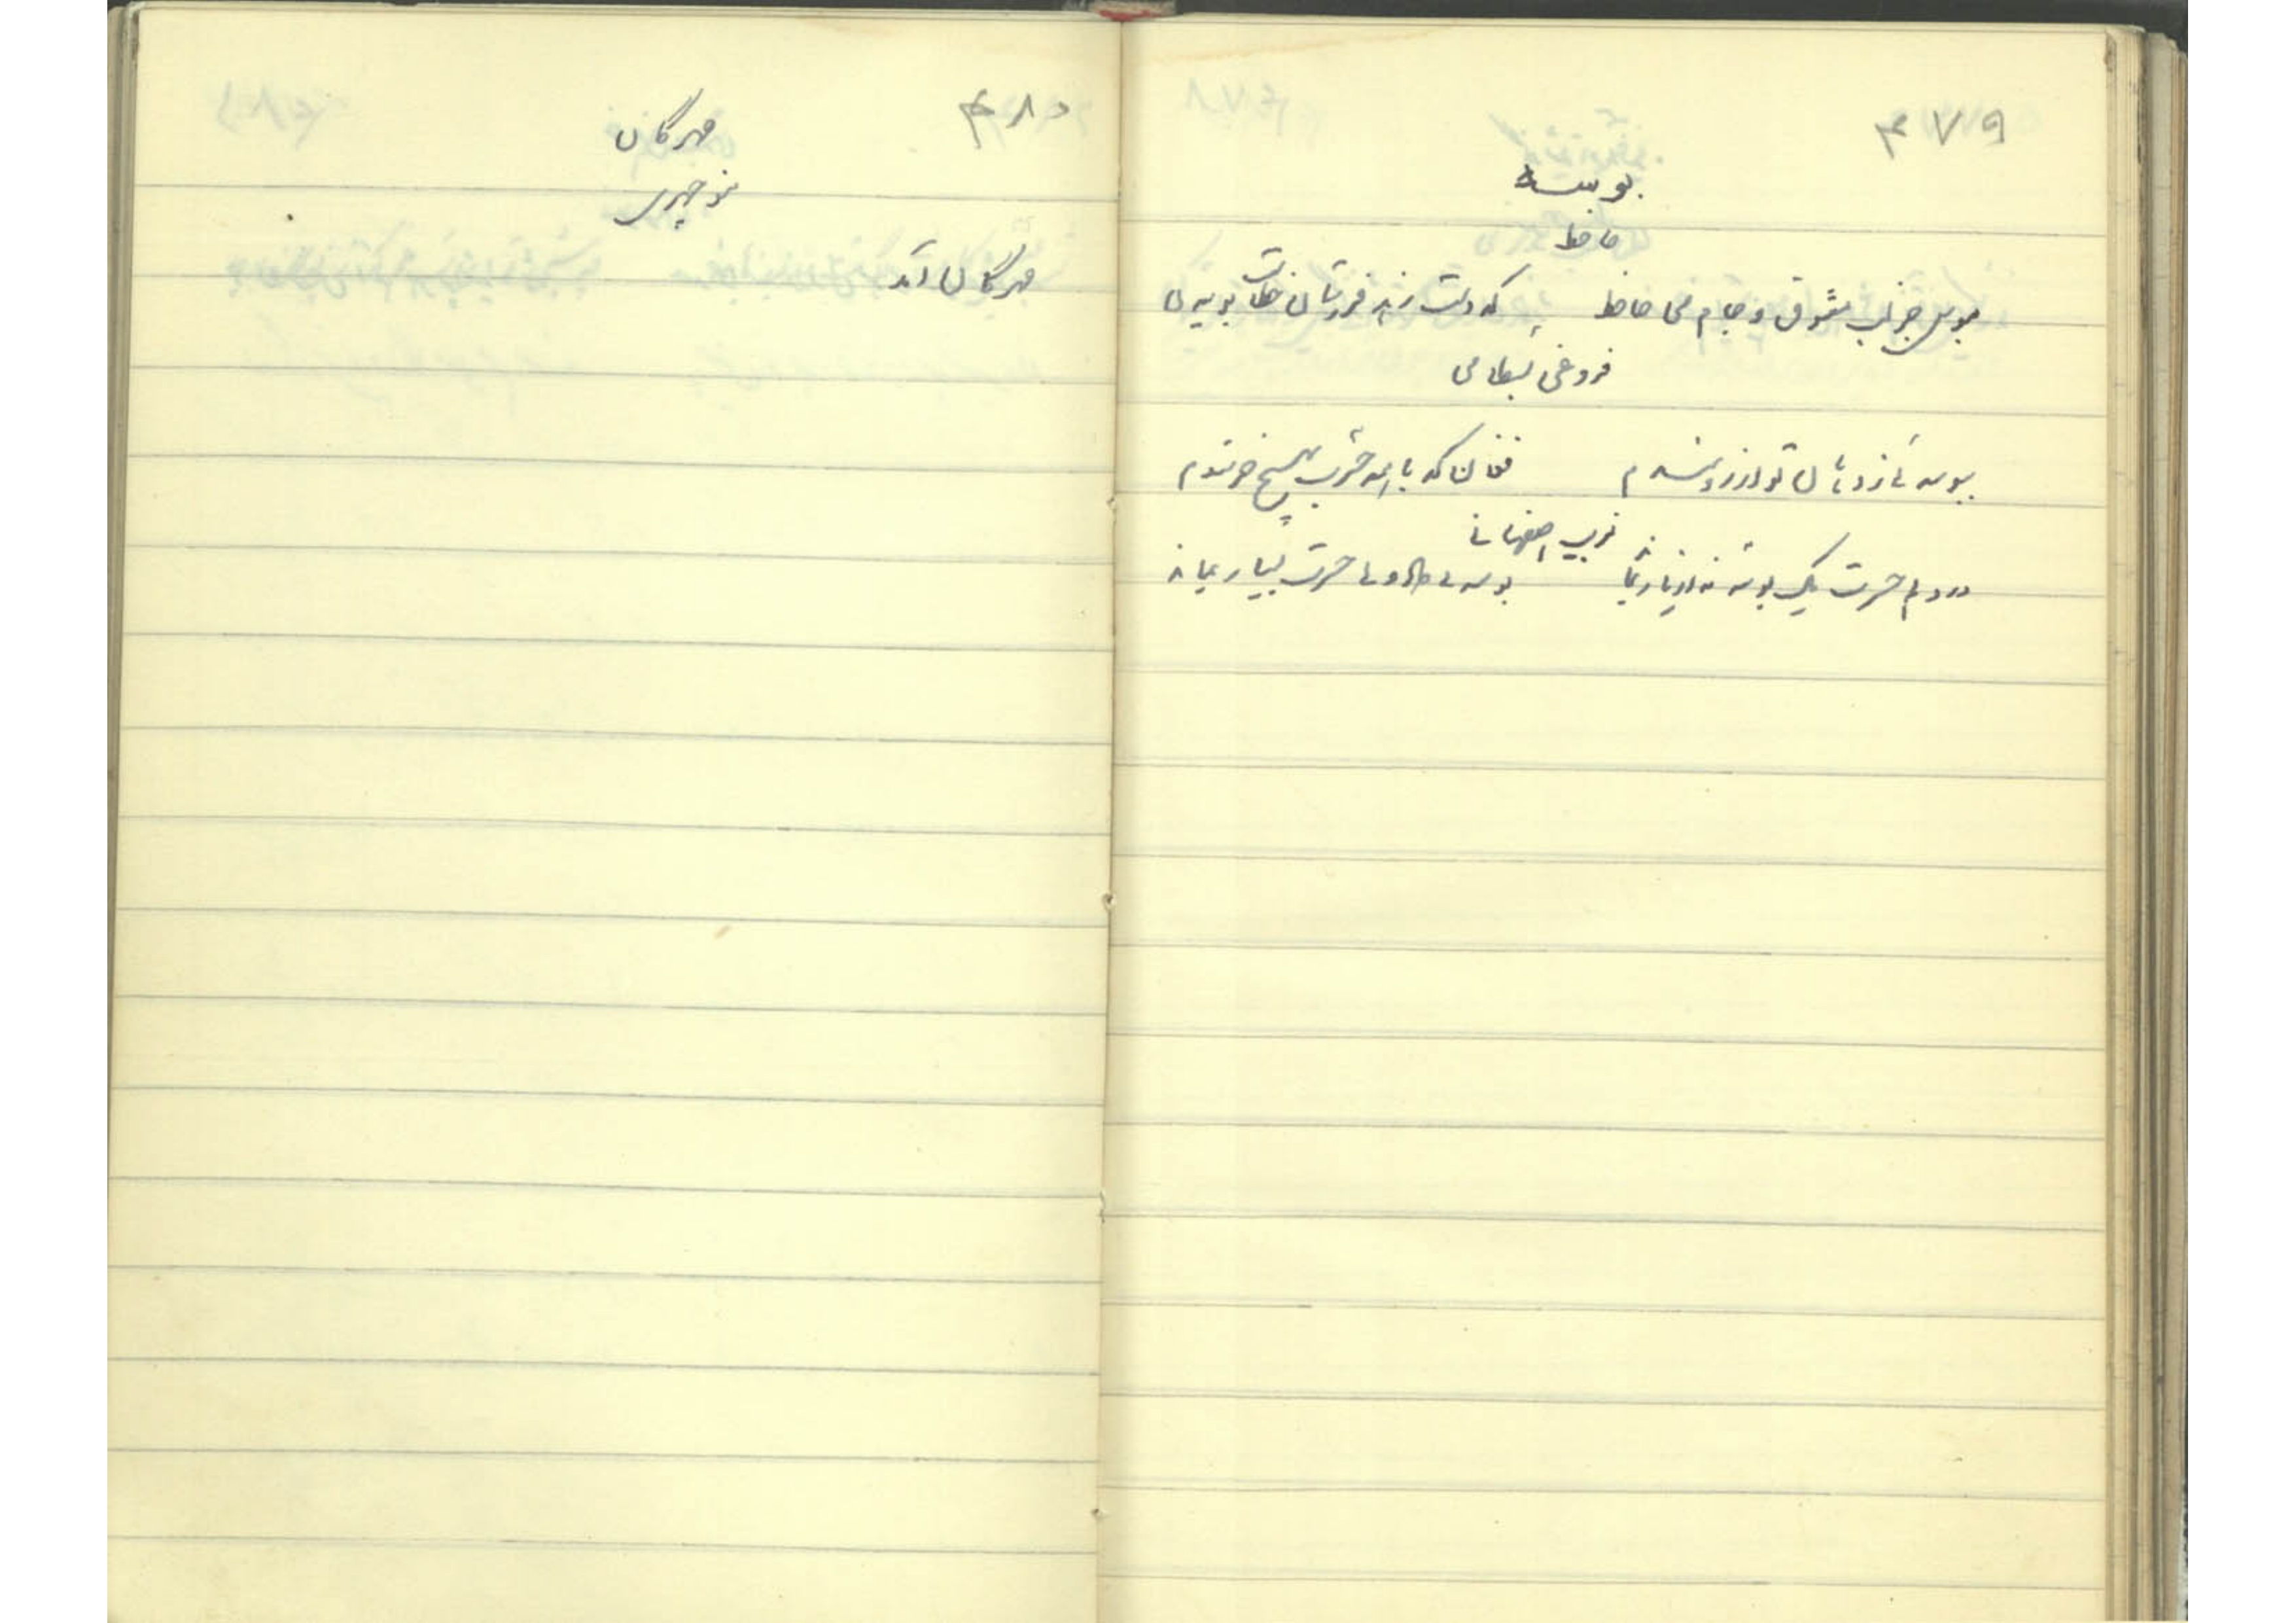 ۴۷۹
بوسه
حافظ
مبوس جز لب معشوق و جام می حافظ که دست زهد فروشان خطاست بوسیدن
فروغی بسطامی
ببوسه ای ز دهان تو آرزومندم فغان که با همه حسرت بهیچ خرسندم
اصفهانی
در دلم حسرت یک بوسه نه از یار بماند بوسه ها داد و لی حسرت بسیار بماند
۴۸۰
مهرگان
منوچهری
مهرگان آمد